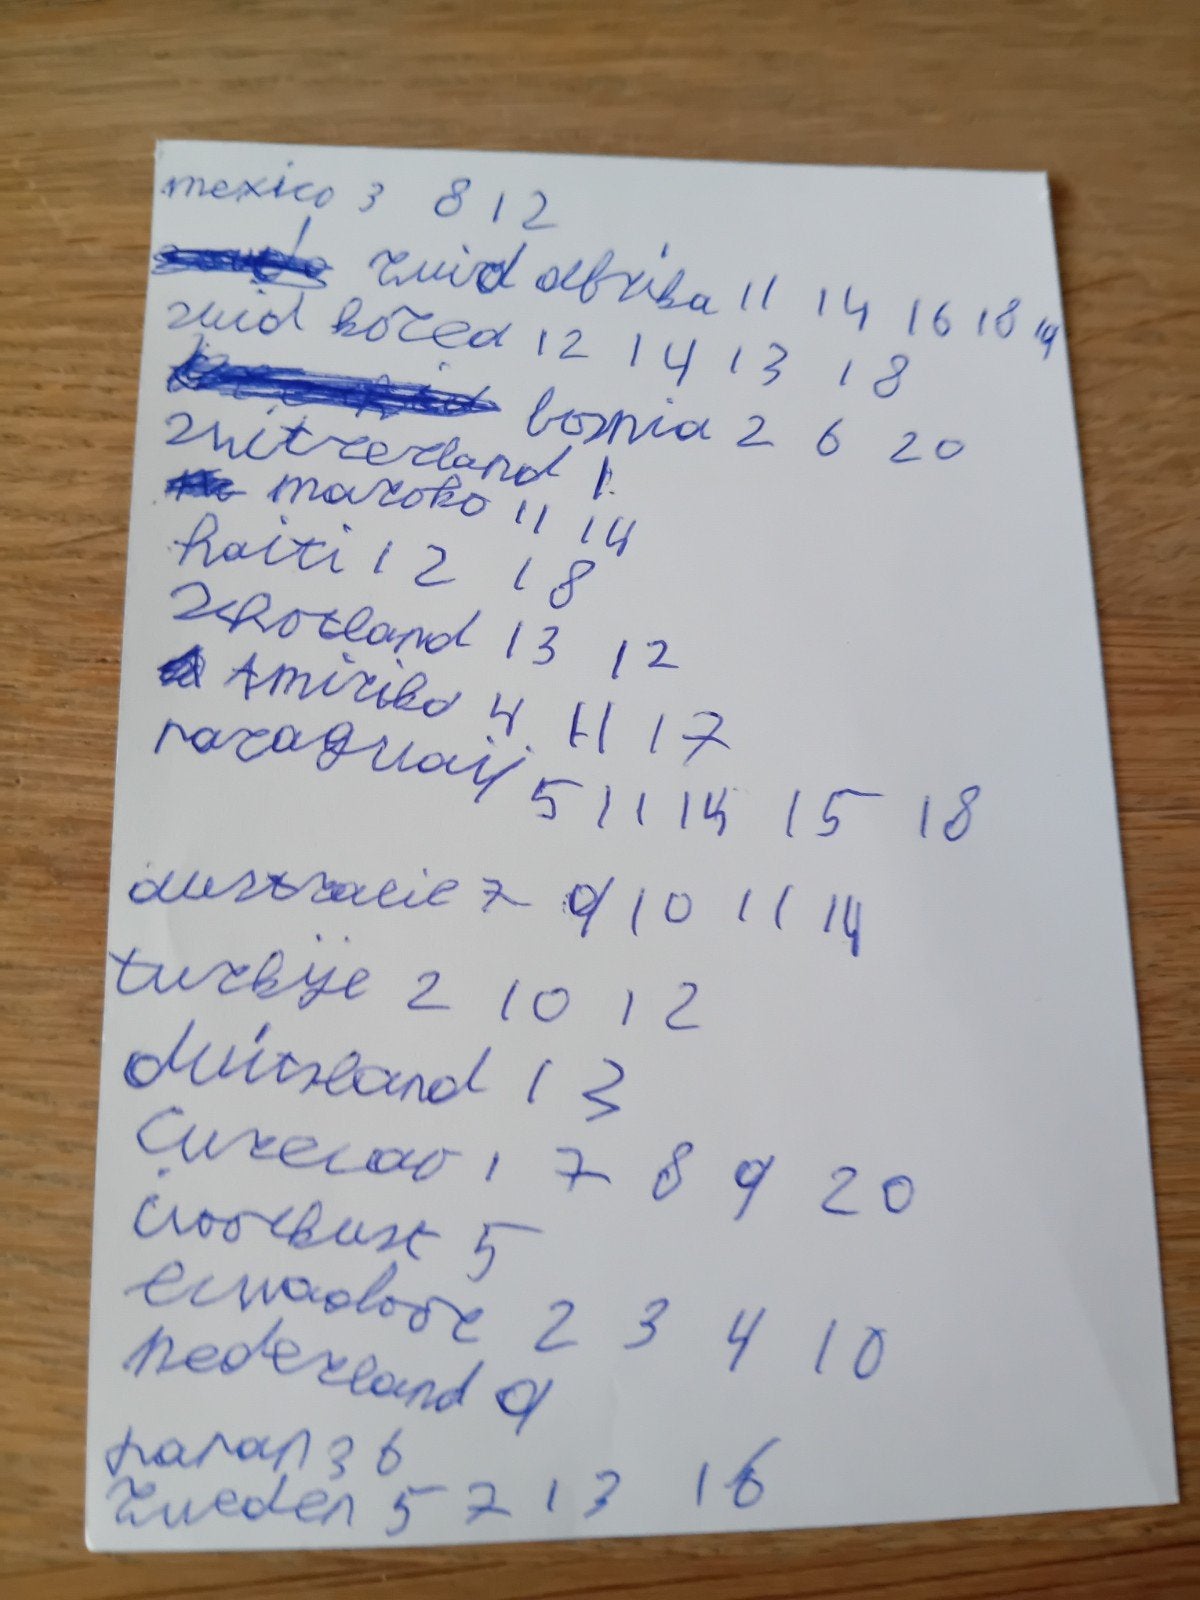 mexico 3 8 12
zuid afrika 11 14 16 18 19
zuid korea 12 14 13 18
bosnia 2 6 20
zwitzerland 1
maroko 11 14
haiti 12 18
schotland 13 12
Amirika 4 11 17
paraguaij 5 11 14 15 18
australie 7 9 10 11 14
turkije 2 10 12
duitsland 13
Curecao 1 7 8 9 20
ivoorkust 5
ecuadoor 2 3 4 10
nederland 9
japan 3 6
zweden 5 7 13 16